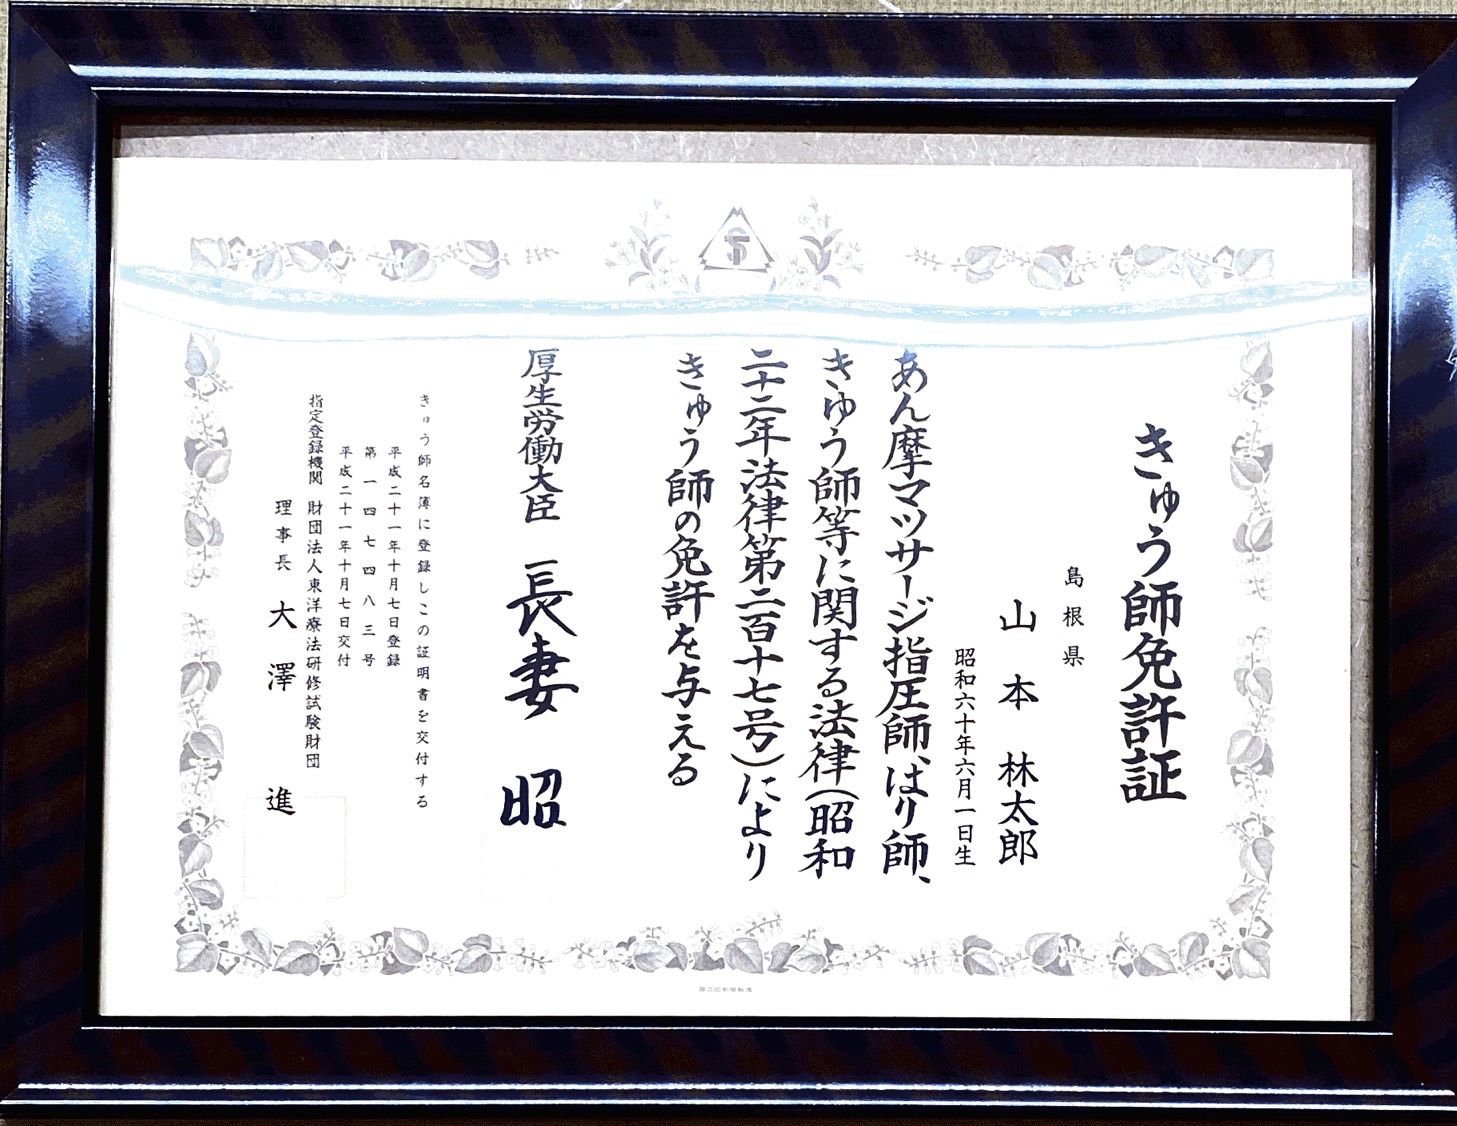 きゅう師免許証
島根県
山本 林太郎
昭和六十年六月一日生
あん摩マツサージ指圧師、はり師、
きゆう師等に関する法律(昭和
二十二年法律第二百十七号)により
きゅう師の免許を与える
厚生労働大臣 長妻 昭
きゅう師名簿に登録しこの証明書を交付する
平成二十一年十月七日登録
第一四七四八三号
平成二十一年十月七日交付
指定登録機関 財団法人東洋療法研修試験財団
理事長 大澤 進